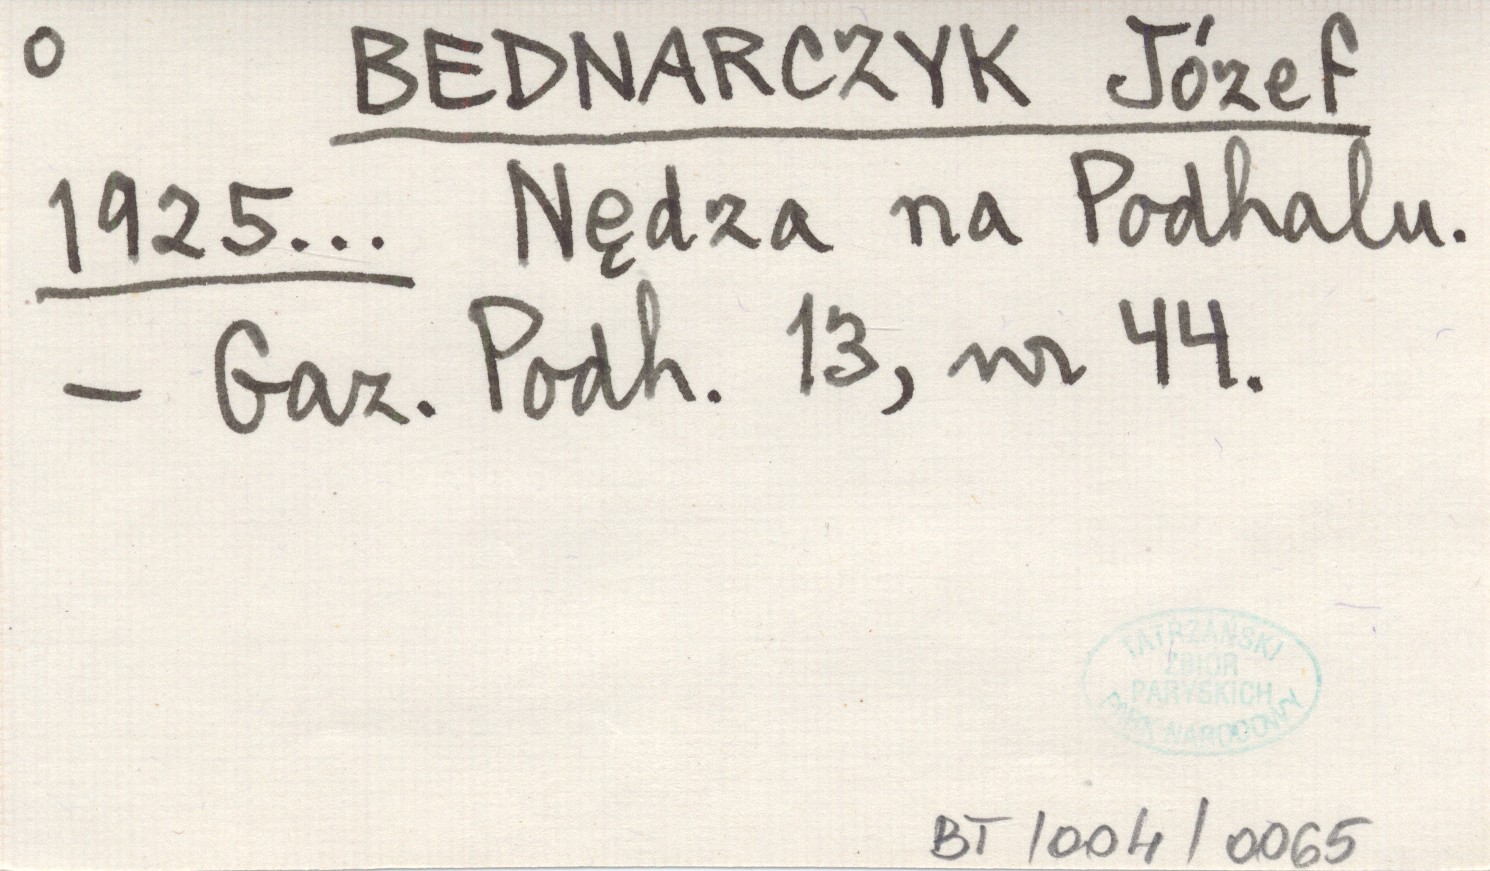 o BEDNARCZYK Józef
1925... Nędza na Podhalu.
– Gaz. Podh. 13, nr 44.
TATRZAŃSKI
ZBIÓR
PARYSKICH
PARK NARODOWY
BT/004/0065